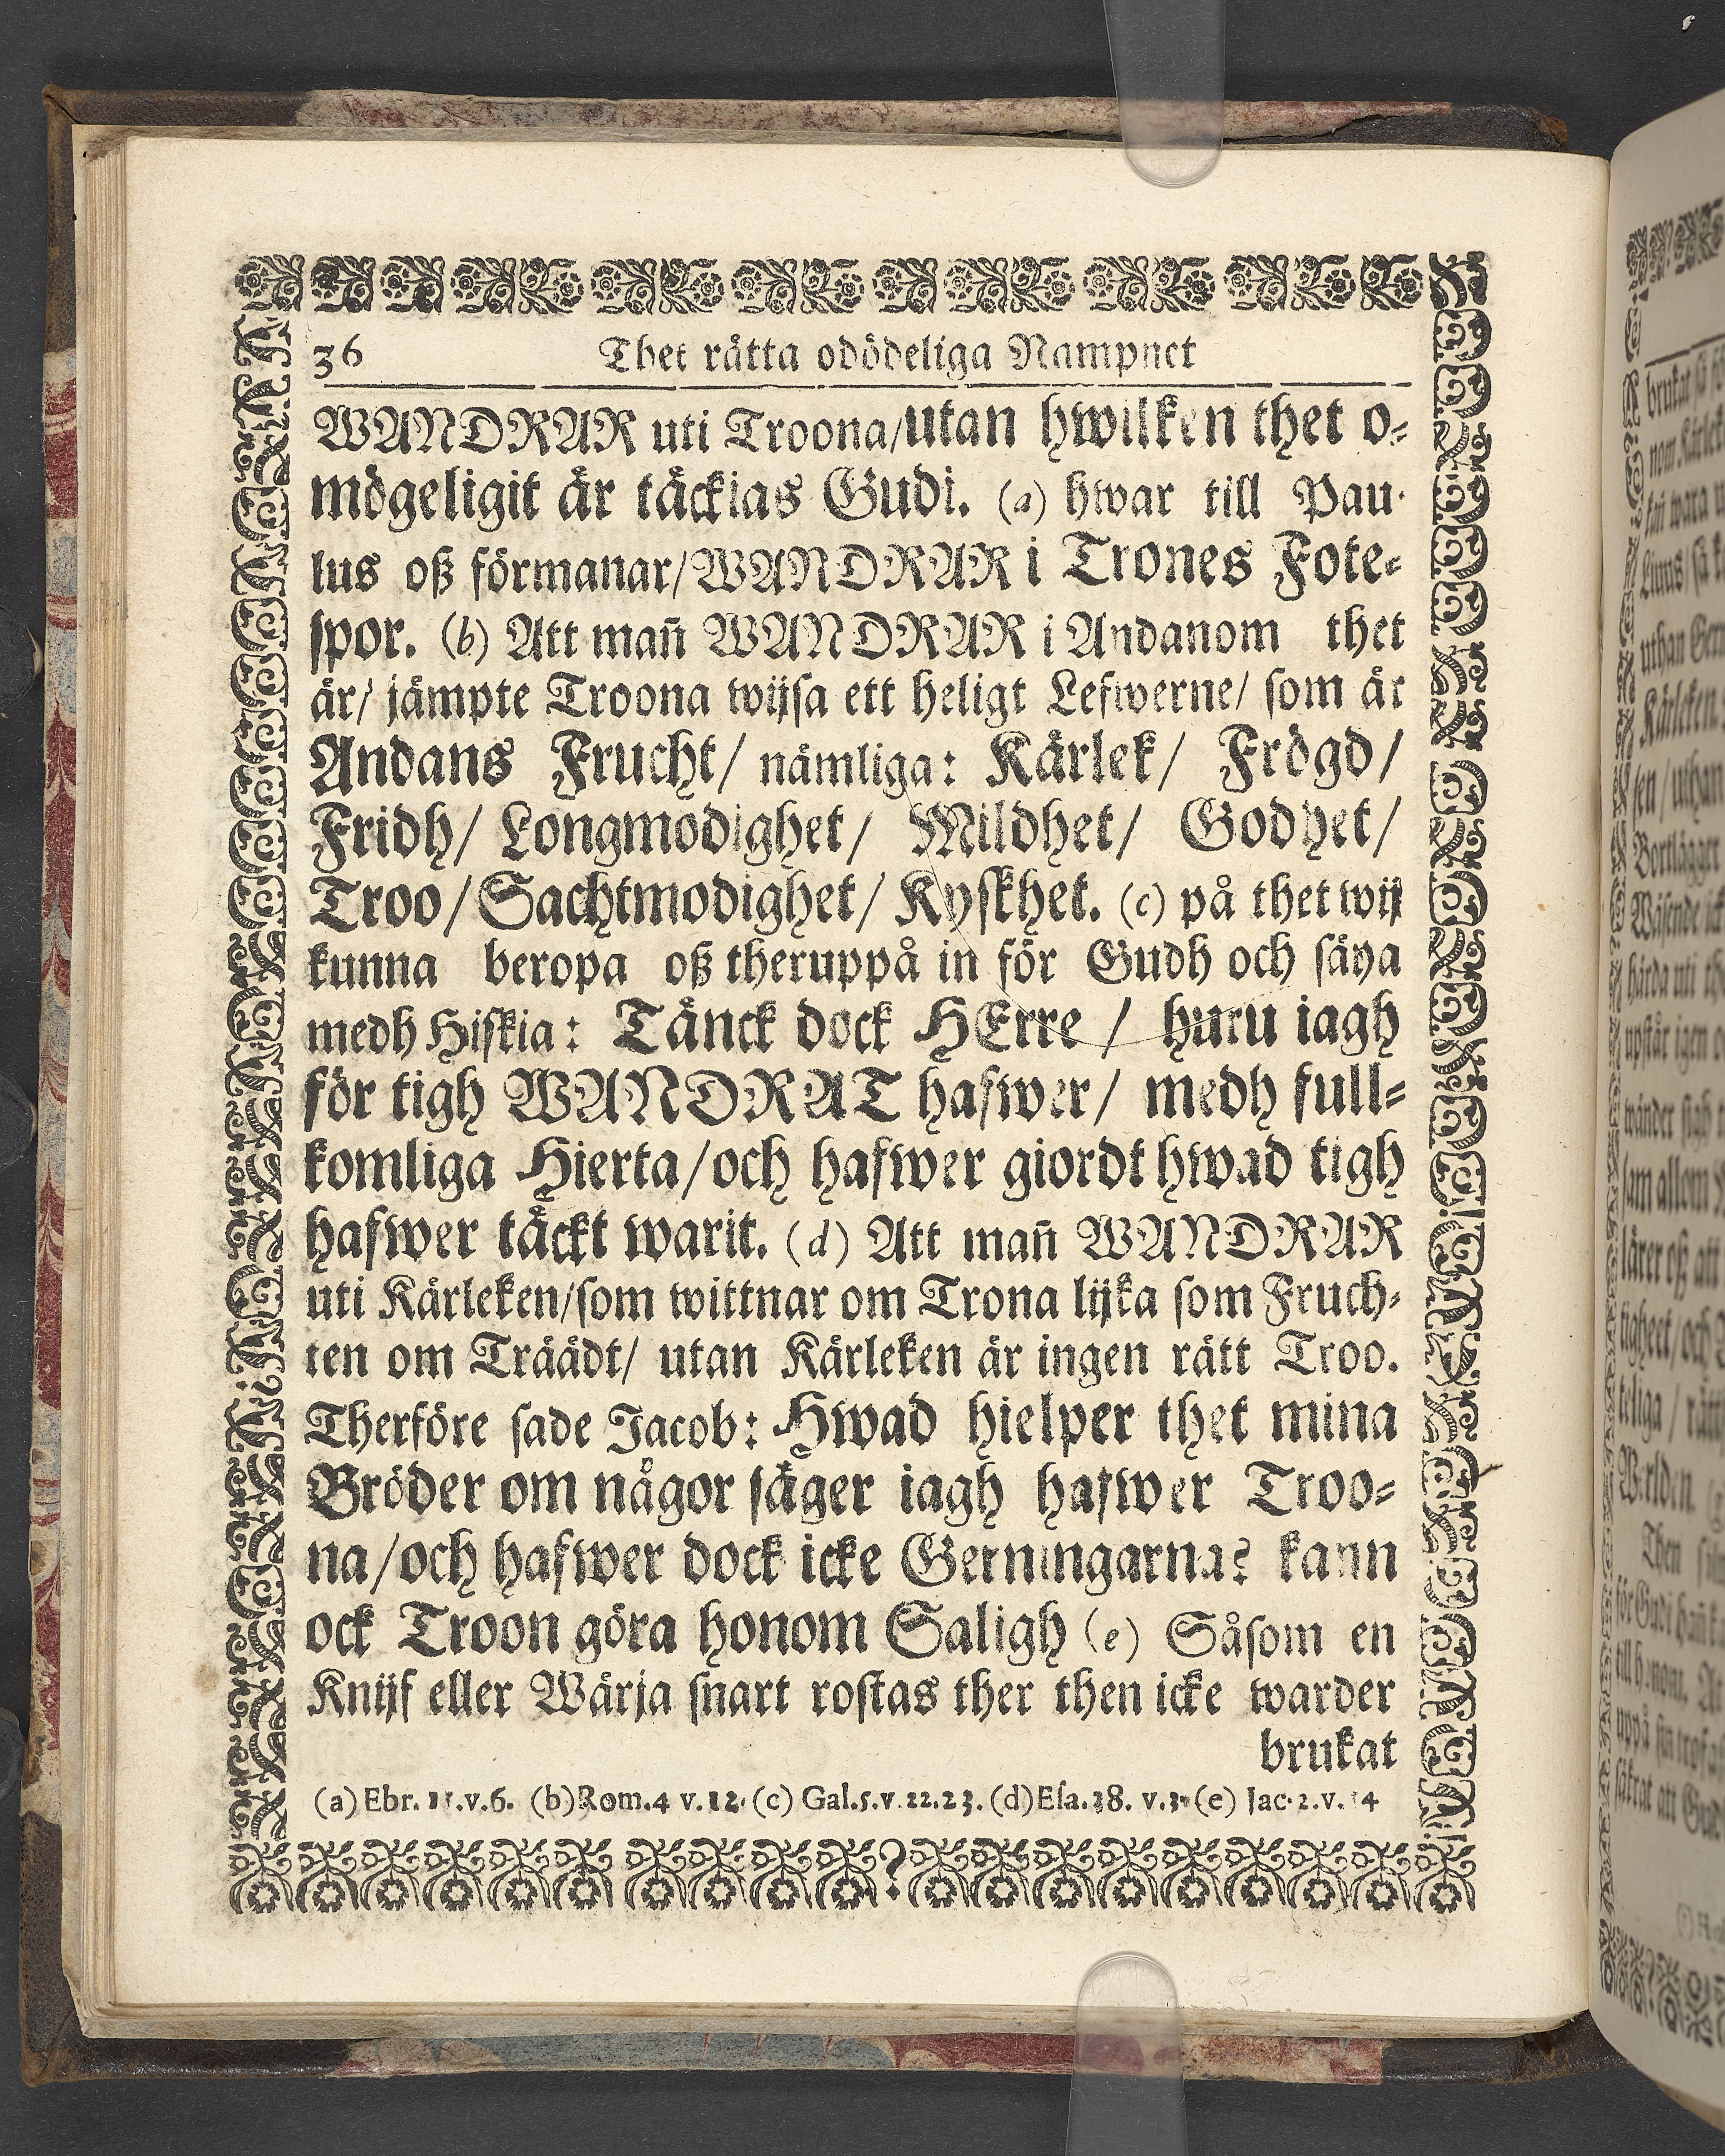 36 Thet rätta odödeliga Nampnet
WANDRAR uti Troona/utan hwilken thet o-
mögeligit är täckias Gudi. (a) hwar till Pau-
lus oß förmanar/WANDRAR i Trones Fote-
spor. (b) Att mañ WANDRAR i Andanom thet
är/ jämpte Troona wijsa ett heligt Lefwerne/ som är
Andans Frucht/ nämliga: Kärlek/ Frögd/
Fridh/ Longmodighet/ Mildhet/ Godhet/
Troo/Sachtmodighet/ Kyskhet. (c) på thet wij
kunna beropa oß theruppå in för Gudh och säya
medh Hiskia: Tänck dock HErre / huru iagh
för tigh WANDRAT hafwer/ medh full-
komliga Hierta/och hafwer giordt hwad tigh
hafwer täckt warit. (d) Att mañ WANDRAR
uti Kärleken/som wittnar om Trona lijka som Fruch-
ten om Träädt/ utan Kärleken är ingen rätt Troo.
Therföre sade Jacob: Hwad hielper thet mina
Bröder om någor säger iagh hafwer Troo-
na/och hafwer dock icke Gerningarna? kann
ock Troon göra honom Saligh (e) Såsom en
Knijf eller Wärja snart rostas ther then icke warder
brukat
(a) Ebr. 11.v.6. (b) Rom.4 v.12. (c) Gal.5.v.22.23. (d) Esa.38. v.3. (e) Jac.2.v.14